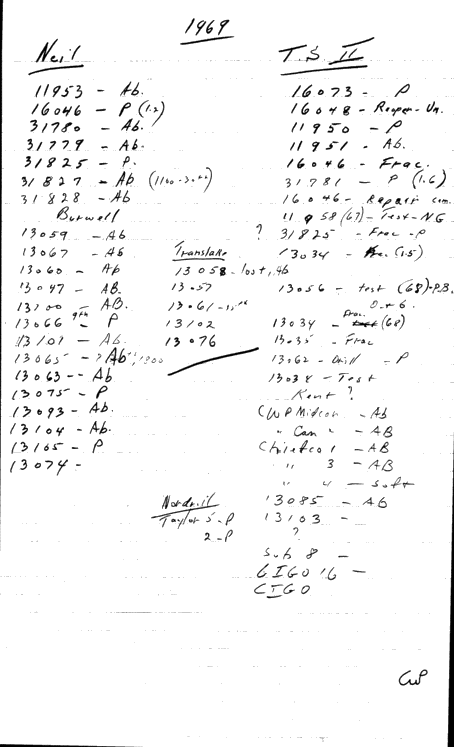 1969
Neil
11953 - Ab.
16046 - P (1.2)
31780 - Ab.
31779 - Ab.
31825 - P.
31827 - Ab
31828 - Ab
Burwell
13059 - Ab
13067 - Ab
13060 - Ab
13047 - AB.
13100 - AB.
13066 - P
13101 - Ab.
13065 - Ab
13063 - Ab
13075 - P
13093 - Ab.
13104 - Ab.
13105 - P
13074 -
Translake
13058 - lost, Ab
13057
13061
13102
13076
Nordrill
Taylor 5 - P
2 - P
T.S II
16073 - P
16048 - Reoper - Un.
11950 - P
11951 - Ab.
16046 - Frac.
31781 - P (1.6)
16046 - Repair com.
11958 (67) - Test - NG
? 31825 - Frac - P
13034 - (1.5)
13056 - test (68) - P.B.
13034 - Frac (68)
13035 - Frac
13062 - Drill - P
13038 - Test
Kent ?
CWP Midcon - Ab
" Can " - AB
- AB
" 3 - AB
" 4 - Soft
13085 - Ab
13103 -
?
Sub 8 -
GIGO 16 -
CIGO
CWP